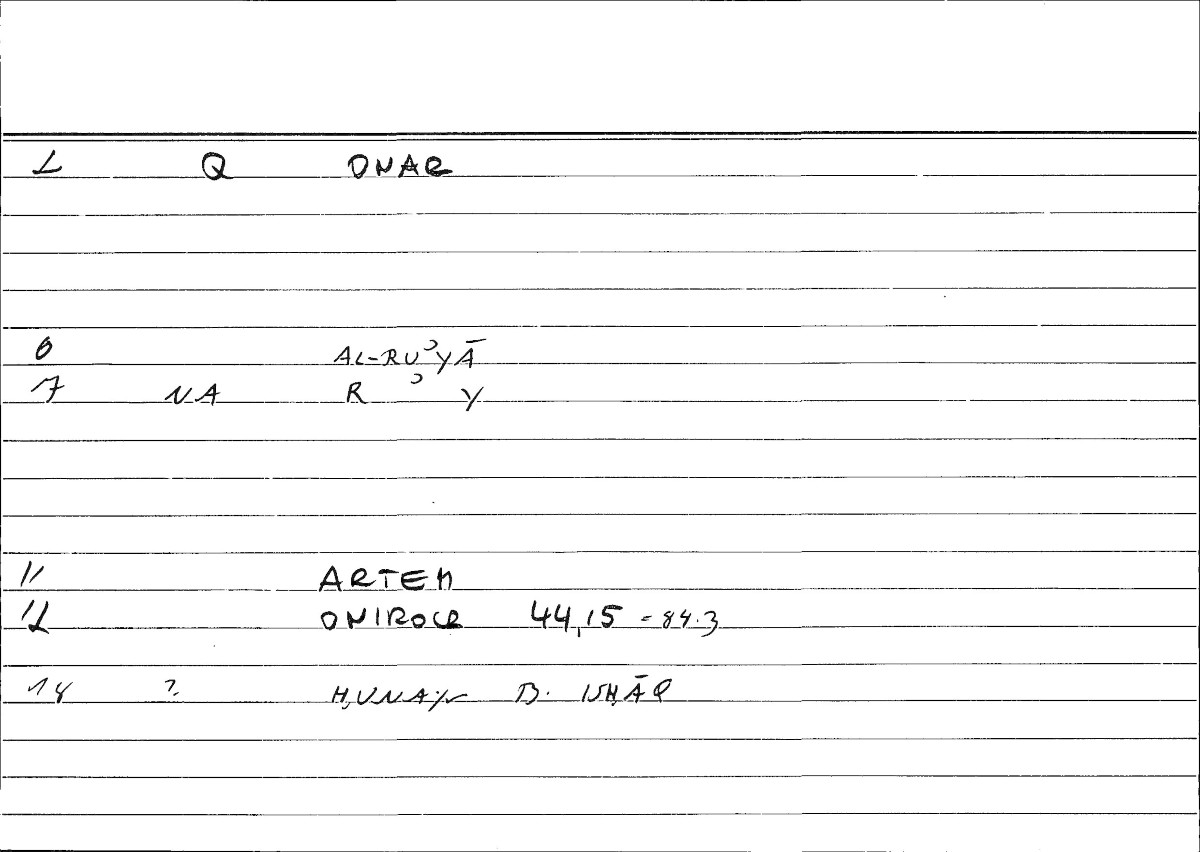 2 Q ONAR
6 AL-RUʾYĀ
7 NA R ʾ Y
11 ARTEM
12 ONIROCR 44,15 = 84.3
18 ? ḤUNAYN B. ISḤĀQ